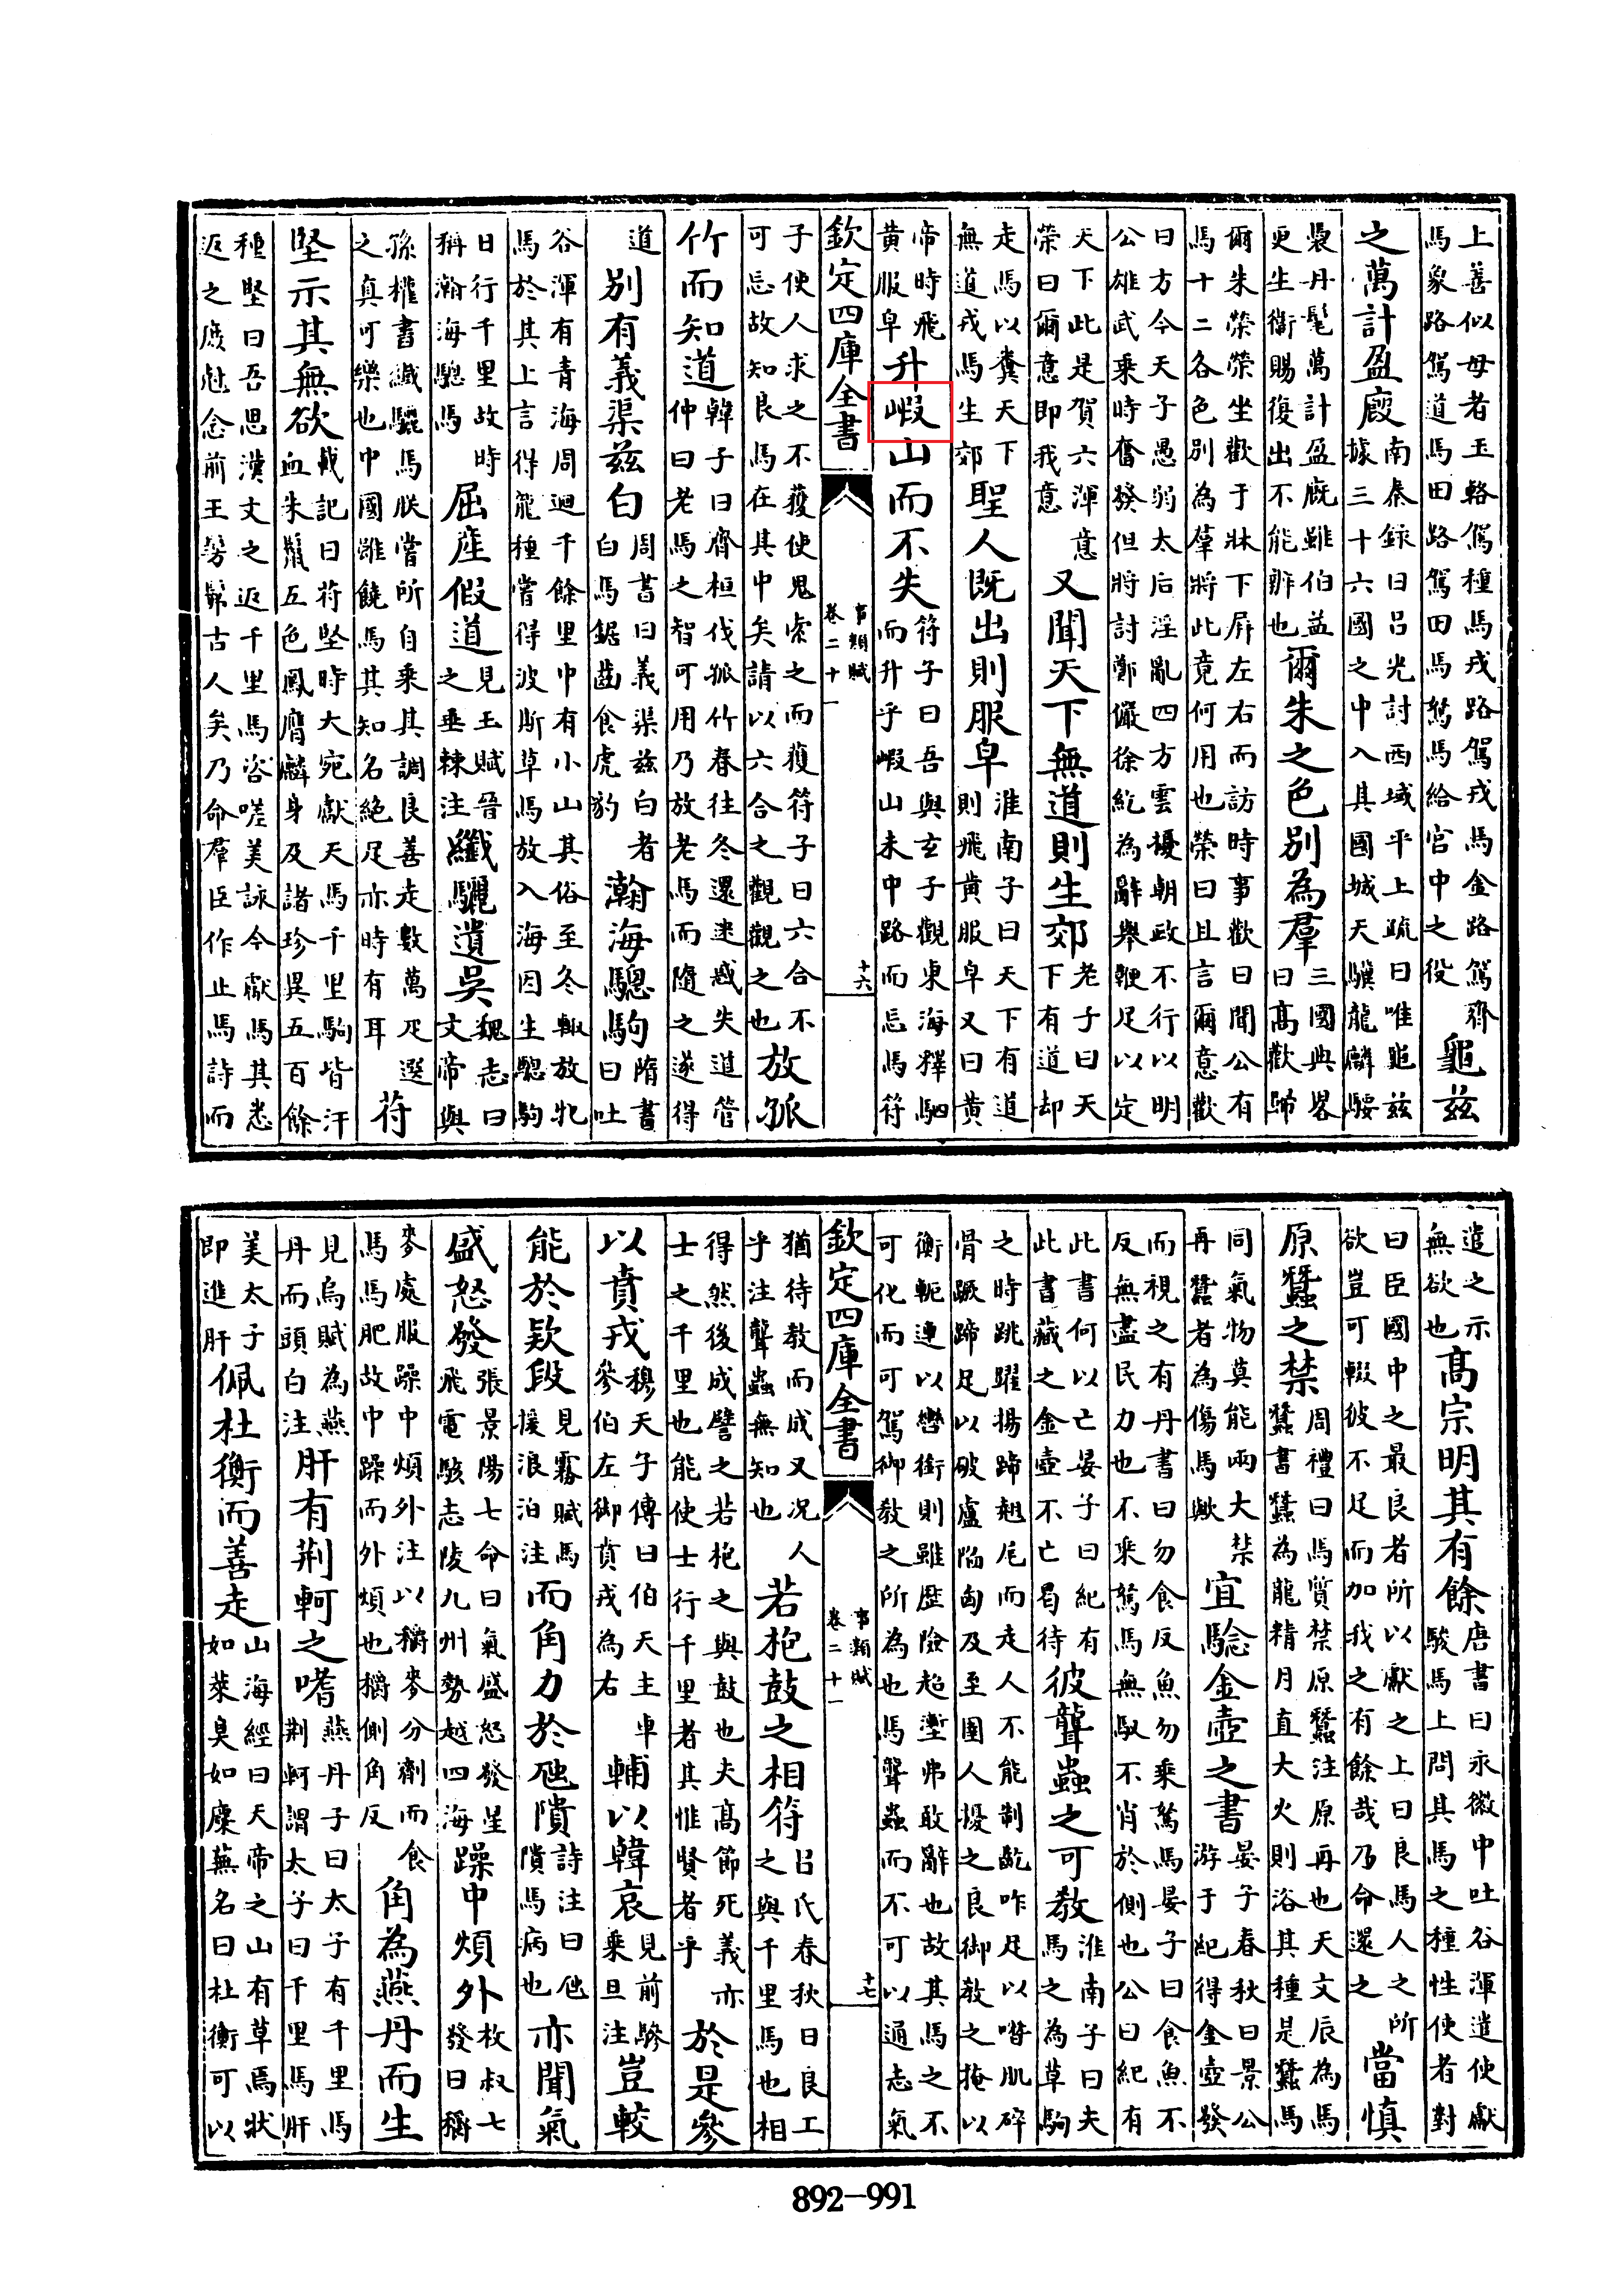 上善似母者玉輅駕種馬戎路駕戎馬金路駕齊
馬象路駕道馬田路駕田馬駑馬給宫中之役
龜兹
之萬計盈廐
南秦録曰吕光討西域平上疏曰唯龜兹
據三十六國之中入其國城天驥龍麟騕
褭丹髦萬計盈廐雖伯益
更生衛賜復出不能辦也
爾朱之色别為羣
三國典畧
曰高歡歸
爾朱榮榮坐歡于牀下屏左右而訪時事歡曰聞公有
馬十二各色别為羣將此竟何用也榮曰且言爾意歡
曰方今天子愚弱太后淫亂四方雲擾朝政不行以明
公雄武乘時奮發但將討鄭儼徐紇為辭舉鞭足以定
天下此是賀六渾意
榮曰爾意即我意
又聞天下無道則生郊
老子曰天
下有道却
走馬以糞天下
無道戎馬生郊
聖人既出則服皁
淮南子曰天下有道
則飛黄服皁又曰黄
帝時飛
黄服皁
升山而不失
符子曰吾與玄子觀東海釋駟
而升乎山未中路而忘馬符
欽定四庫全書
事類賦
卷二十一
十六
子使人求之不獲使鬼索之而獲符子曰六合不
可忘故知良馬在其中矣請以六合之觀觀之也
放孤
竹而知道
韓子曰齊桓伐孤竹春往冬還迷惑失道管
仲曰老馬之智可用乃放老馬而隨之遂得
道
别有義渠兹白
周書曰義渠兹白者
白馬鋸齒食虎豹
瀚海驄駒
隋書
曰吐
谷渾有青海周迴千餘里中有小山其俗至冬輙放牝
馬於其上言得龍種嘗得波斯草馬放入海因生驄駒
日行千里故時
稱瀚海驄馬
屈産假道
見玉賦晉
之垂棘注
纖驪遺吳
魏志曰
文帝與
孫權書纖驪馬朕嘗所自乘其調良善走數萬疋選
之真可樂也中國雖饒馬其知名絶足亦時有耳
苻
堅示其無欲
載記曰苻堅時大宛獻天馬千里駒皆汗
血朱鬛五色鳳膺麟身及諸珍異五百餘
種堅曰吾思漢文之返千里馬咨嗟美詠今獻馬其悉
返之庶尅念前王髣髴古人矣乃命羣臣作止馬詩而
遣之示
無欲也
高宗明其有餘
唐書曰永徽中吐谷渾遣使獻
駿馬上問其馬之種性使者對
曰臣國中之最良者所以獻之上曰良馬人之所
欲豈可輟彼不足而加我之有餘哉乃命還之
當慎
原蠶之禁
周禮曰馬質禁原蠶注原再也天文辰為馬
蠶書蠶為龍精月直大火則浴其種是蠶馬
同氣物莫能兩大禁
再蠶者為傷馬歟
宜驗金壺之書
晏子春秋曰景公
游于紀得金壺發
而視之有丹書曰勿食反魚勿乘駑馬晏子曰食魚不
反無盡民力也不乘駑馬無馭不肖於側也公曰紀有
此書何以亡晏子曰紀有
此書藏之金壺不亡曷待
彼聾蟲之可教
淮南子曰夫
馬之為草駒
之時跳躍揚蹄翹尾而走人不能制齕咋足以噆肌碎
骨蹶蹄足以破盧陷匈及至圉人擾之良御教之掩以
衡軛連以轡銜則雖歷險超壍弗敢辭也故其馬之不
可化而可駕御教之所為也馬聾蟲而不可以通志氣
欽定四庫全書
事類賦
卷二十一
十七
猶待教而成又况人
乎注聾蟲無知也
若枹鼓之相符
吕氏春秋曰良工
之與千里馬也相
得然後成譬之若枹之與鼓也夫高節死義亦
士之千里也能使士行千里者其惟賢者乎
於是參
以賁戎
穆天子傳曰伯天主車
參伯左御賁戎為右
輔以韓哀
見前驂
乗旦注
豈較
能於欵段
見霧賦馬
援浪泊注
而角力於虺隤
詩注曰虺
隤馬病也
亦聞氣
盛怒發
張景陽七命曰氣盛怒發星
飛電駭志陵九州勢越四海
躁中煩外
枚叔七
發曰穱
麥處服躁中煩外注以穱麥分劑而食
馬馬肥故中躁而外煩也穱側角反
角為燕丹而生
見烏賦為燕
丹而頭白注
肝有荆軻之嗜
燕丹子曰太子有千里馬
荆軻謂太子曰千里馬肝
美太子
即進肝
佩杜衡而善走
山海經曰天帝之山有草焉狀
如葵臭如麋蕪名曰杜衡可以
892-991